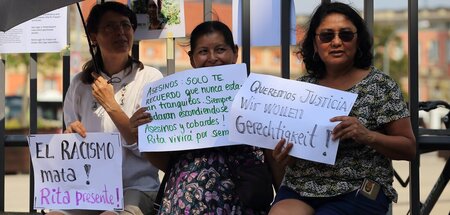 EL RACISMO
mata!
Rita presente!
ASESINOS: SOLO TE
RECUERDO QUE NUNCA ESTARAN
tranquilos. Siempre
andaran escondiendose
Asesinos y cobardes!
Rita vivirá por siem
Queremos JUSTICIA
WIR WOLLEN
Gerechtigkeit!